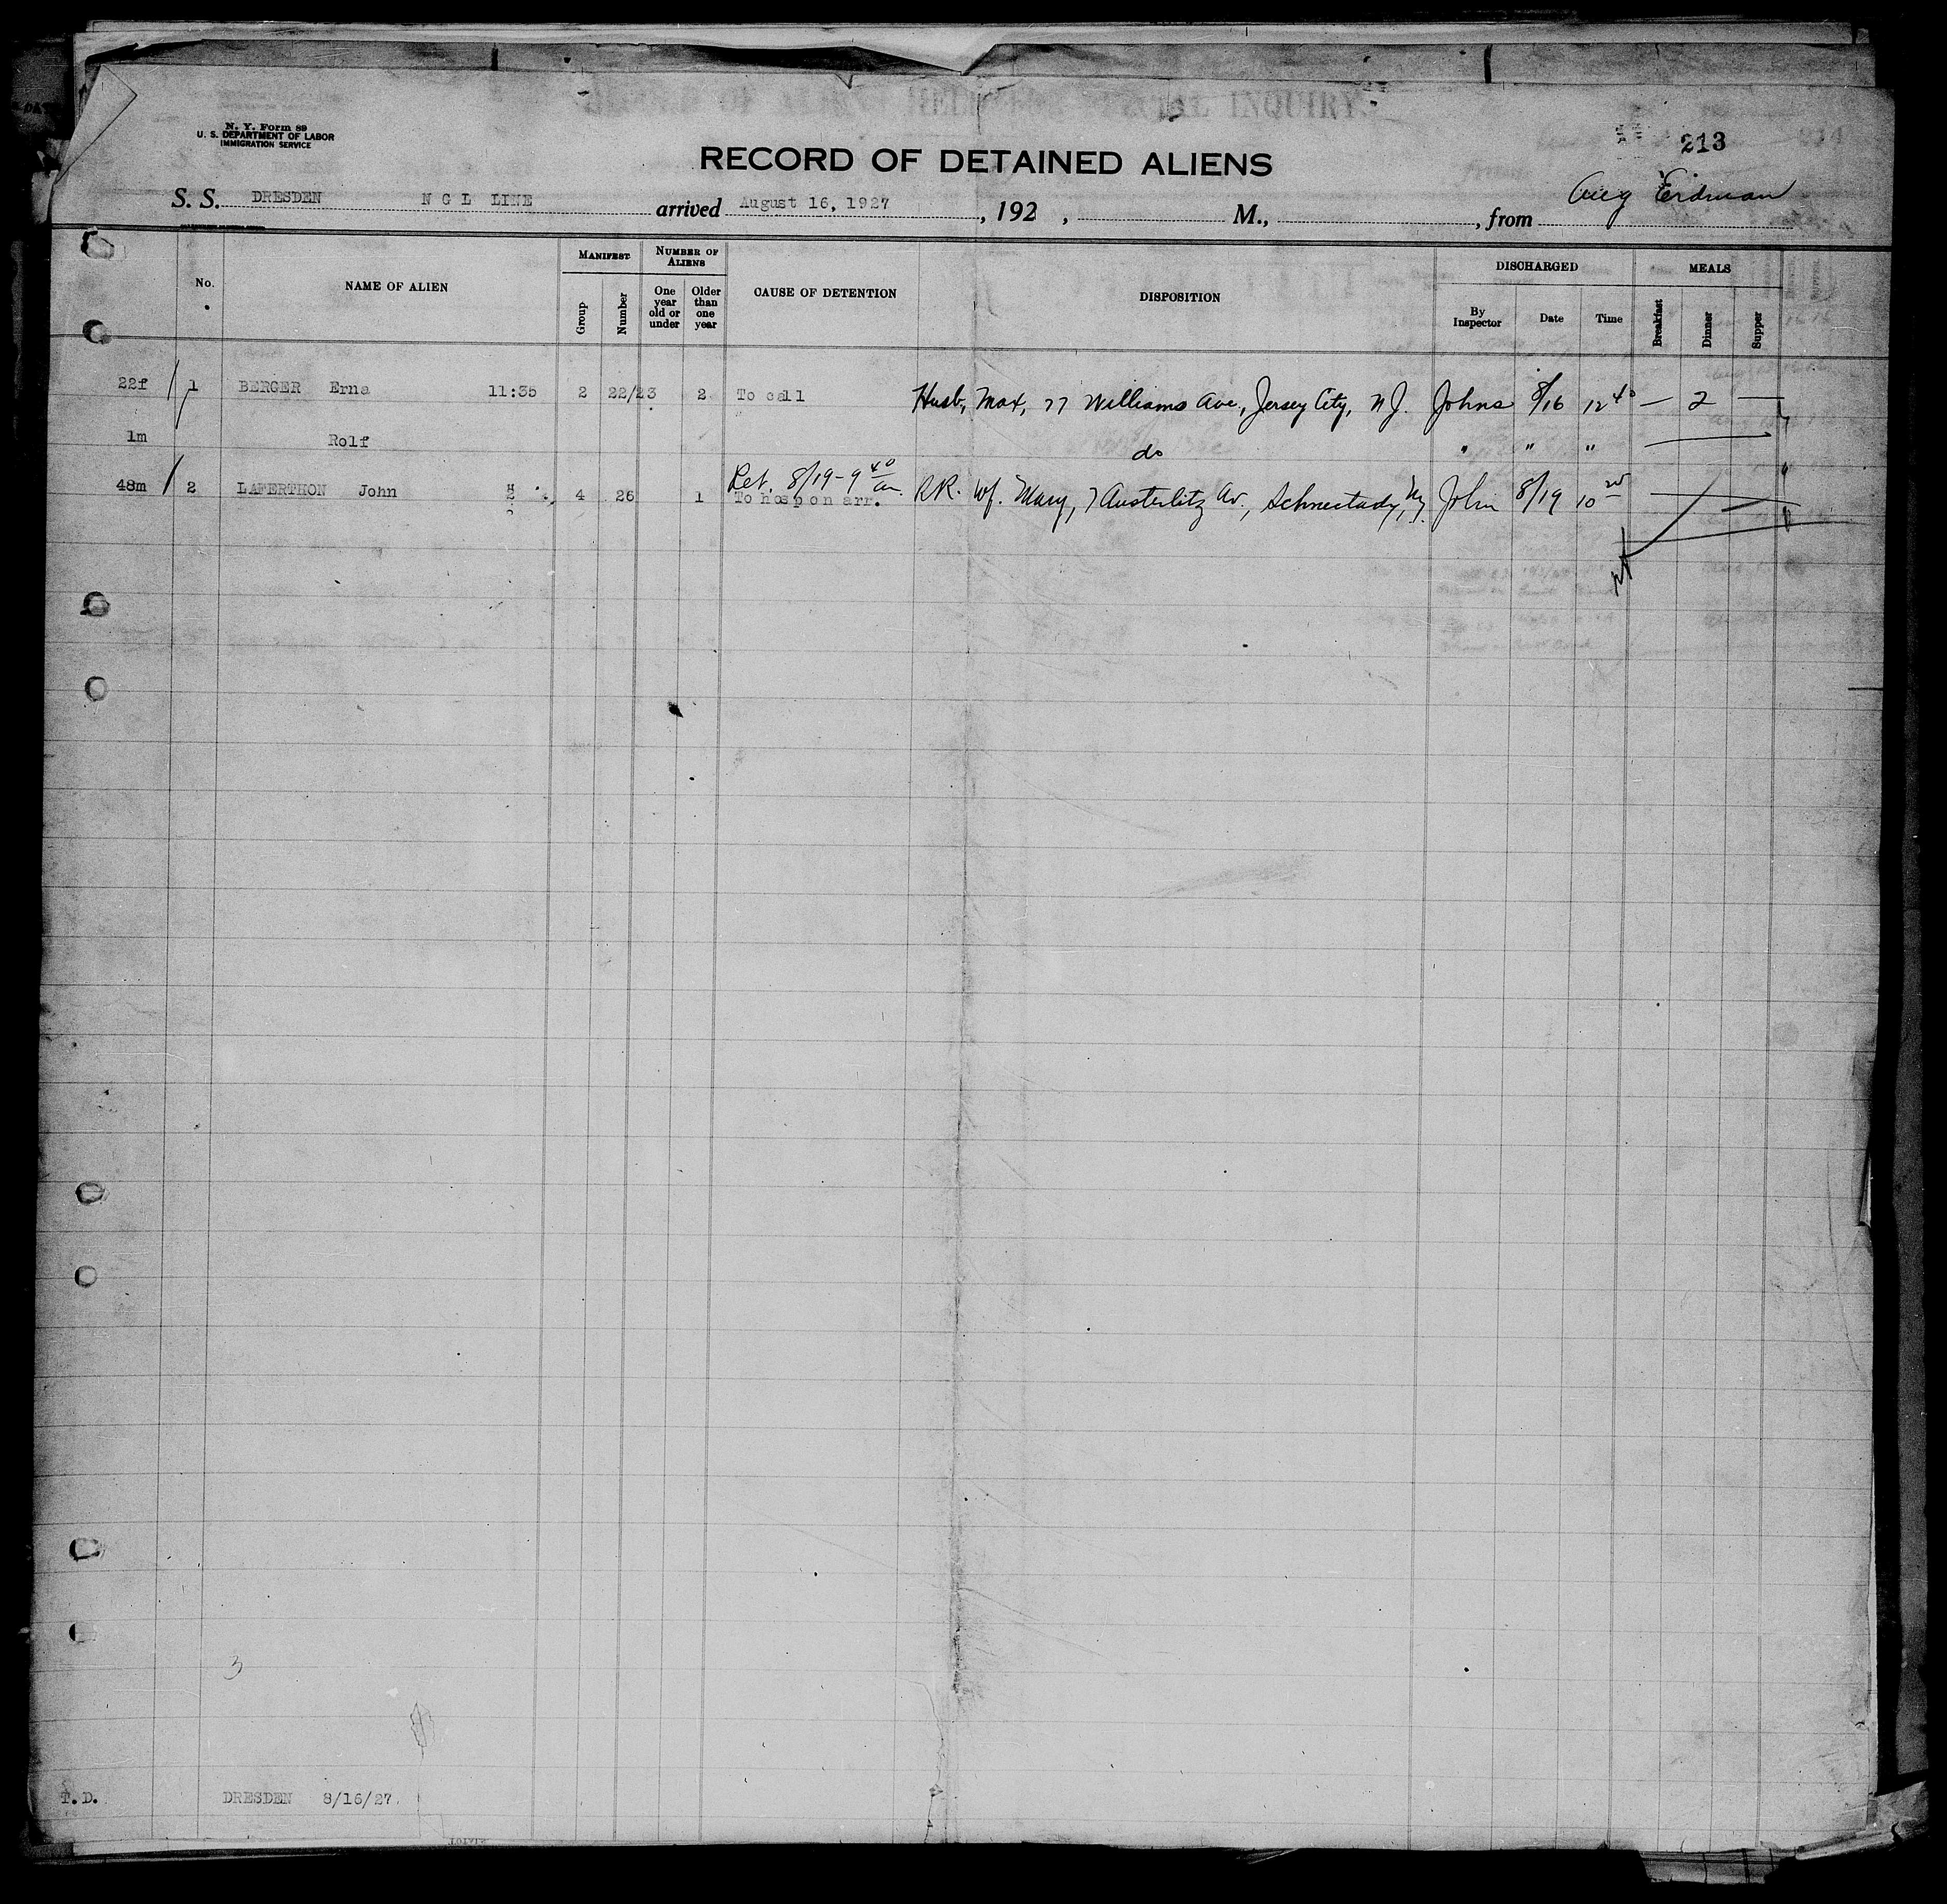 N. Y. Form 89
U. S. DEPARTMENT OF LABOR
IMMIGRATION SERVICE
213
RECORD OF DETAINED ALIENS
S. S. DRESDEN N G L LINE arrived August 16, 1927, 192 , M., , from Aug Erdman
No. NAME OF ALIEN MANIFEST NUMBER OF ALIENS CAUSE OF DETENTION DISPOSITION DISCHARGED MEALS
Group Number One year old or under Older than one year By Inspector Date Time Breakfast Dinner Supper
22f 1 BERGER Erna 11:35 2 22/23 2 To call Husb, Max, 77 Williams Ave., Jersey City, N.J. Johns 8/16 12 40 — 2 —
1m Rolf do " " "
Ret. 8/19 - 9 40 am.
48m 2 LAFERTHON John 4 26 1 To hosp on arr. RR. Wf. Mary, 7 Austerlitz Av., Schnectady, Ny. John 8/19 10
3
T.D. DRESDEN 8/16/27.